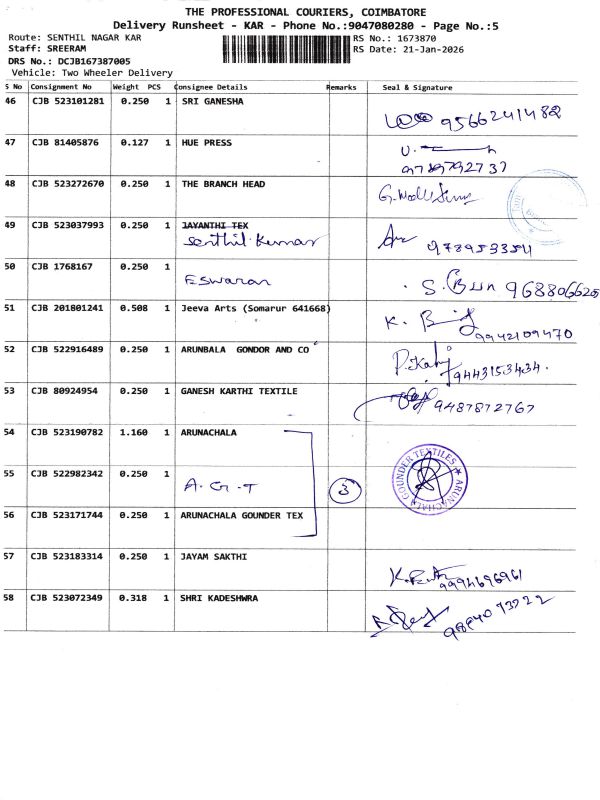 THE PROFESSIONAL COURIERS, COIMBATORE
Delivery Runsheet - KAR - Phone No.:9047080280 - Page No.:5
Route: SENTHIL NAGAR KAR RS No.: 1673870
Staff: SREERAM RS Date: 21-Jan-2026
DRS No.: DCJB167387005
Vehicle: Two Wheeler Delivery
S No Consignment No Weight PCS Consignee Details Remarks Seal & Signature
46 CJB 523101281 0.250 1 SRI GANESHA
9566241482
47 CJB 81405876 0.127 1 HUE PRESS
9789792737
48 CJB 523272670 0.250 1 THE BRANCH HEAD
49 CJB 523037993 0.250 1 JAYANTHI TEX
Senthil.Kumar
50 CJB 1768167 0.250 1
Eswaran
S. 9688066625
51 CJB 201801241 0.508 1 Jeeva Arts (Somarur 641668)
K. 9942109470
52 CJB 522916489 0.250 1 ARUNBALA GONDOR AND CO
9443153434.
53 CJB 80924954 0.250 1 GANESH KARTHI TEXTILE
9487872767
54 CJB 523190782 1.160 1 ARUNACHALA
55 CJB 522982342 0.250 1
A.G.T
3
ARUNACHALA GOUNDER TEXTILES
56 CJB 523171744 0.250 1 ARUNACHALA GOUNDER TEX
57 CJB 523183314 0.250 1 JAYAM SAKTHI
9994696961
58 CJB 523072349 0.318 1 SHRI KADESHWRA